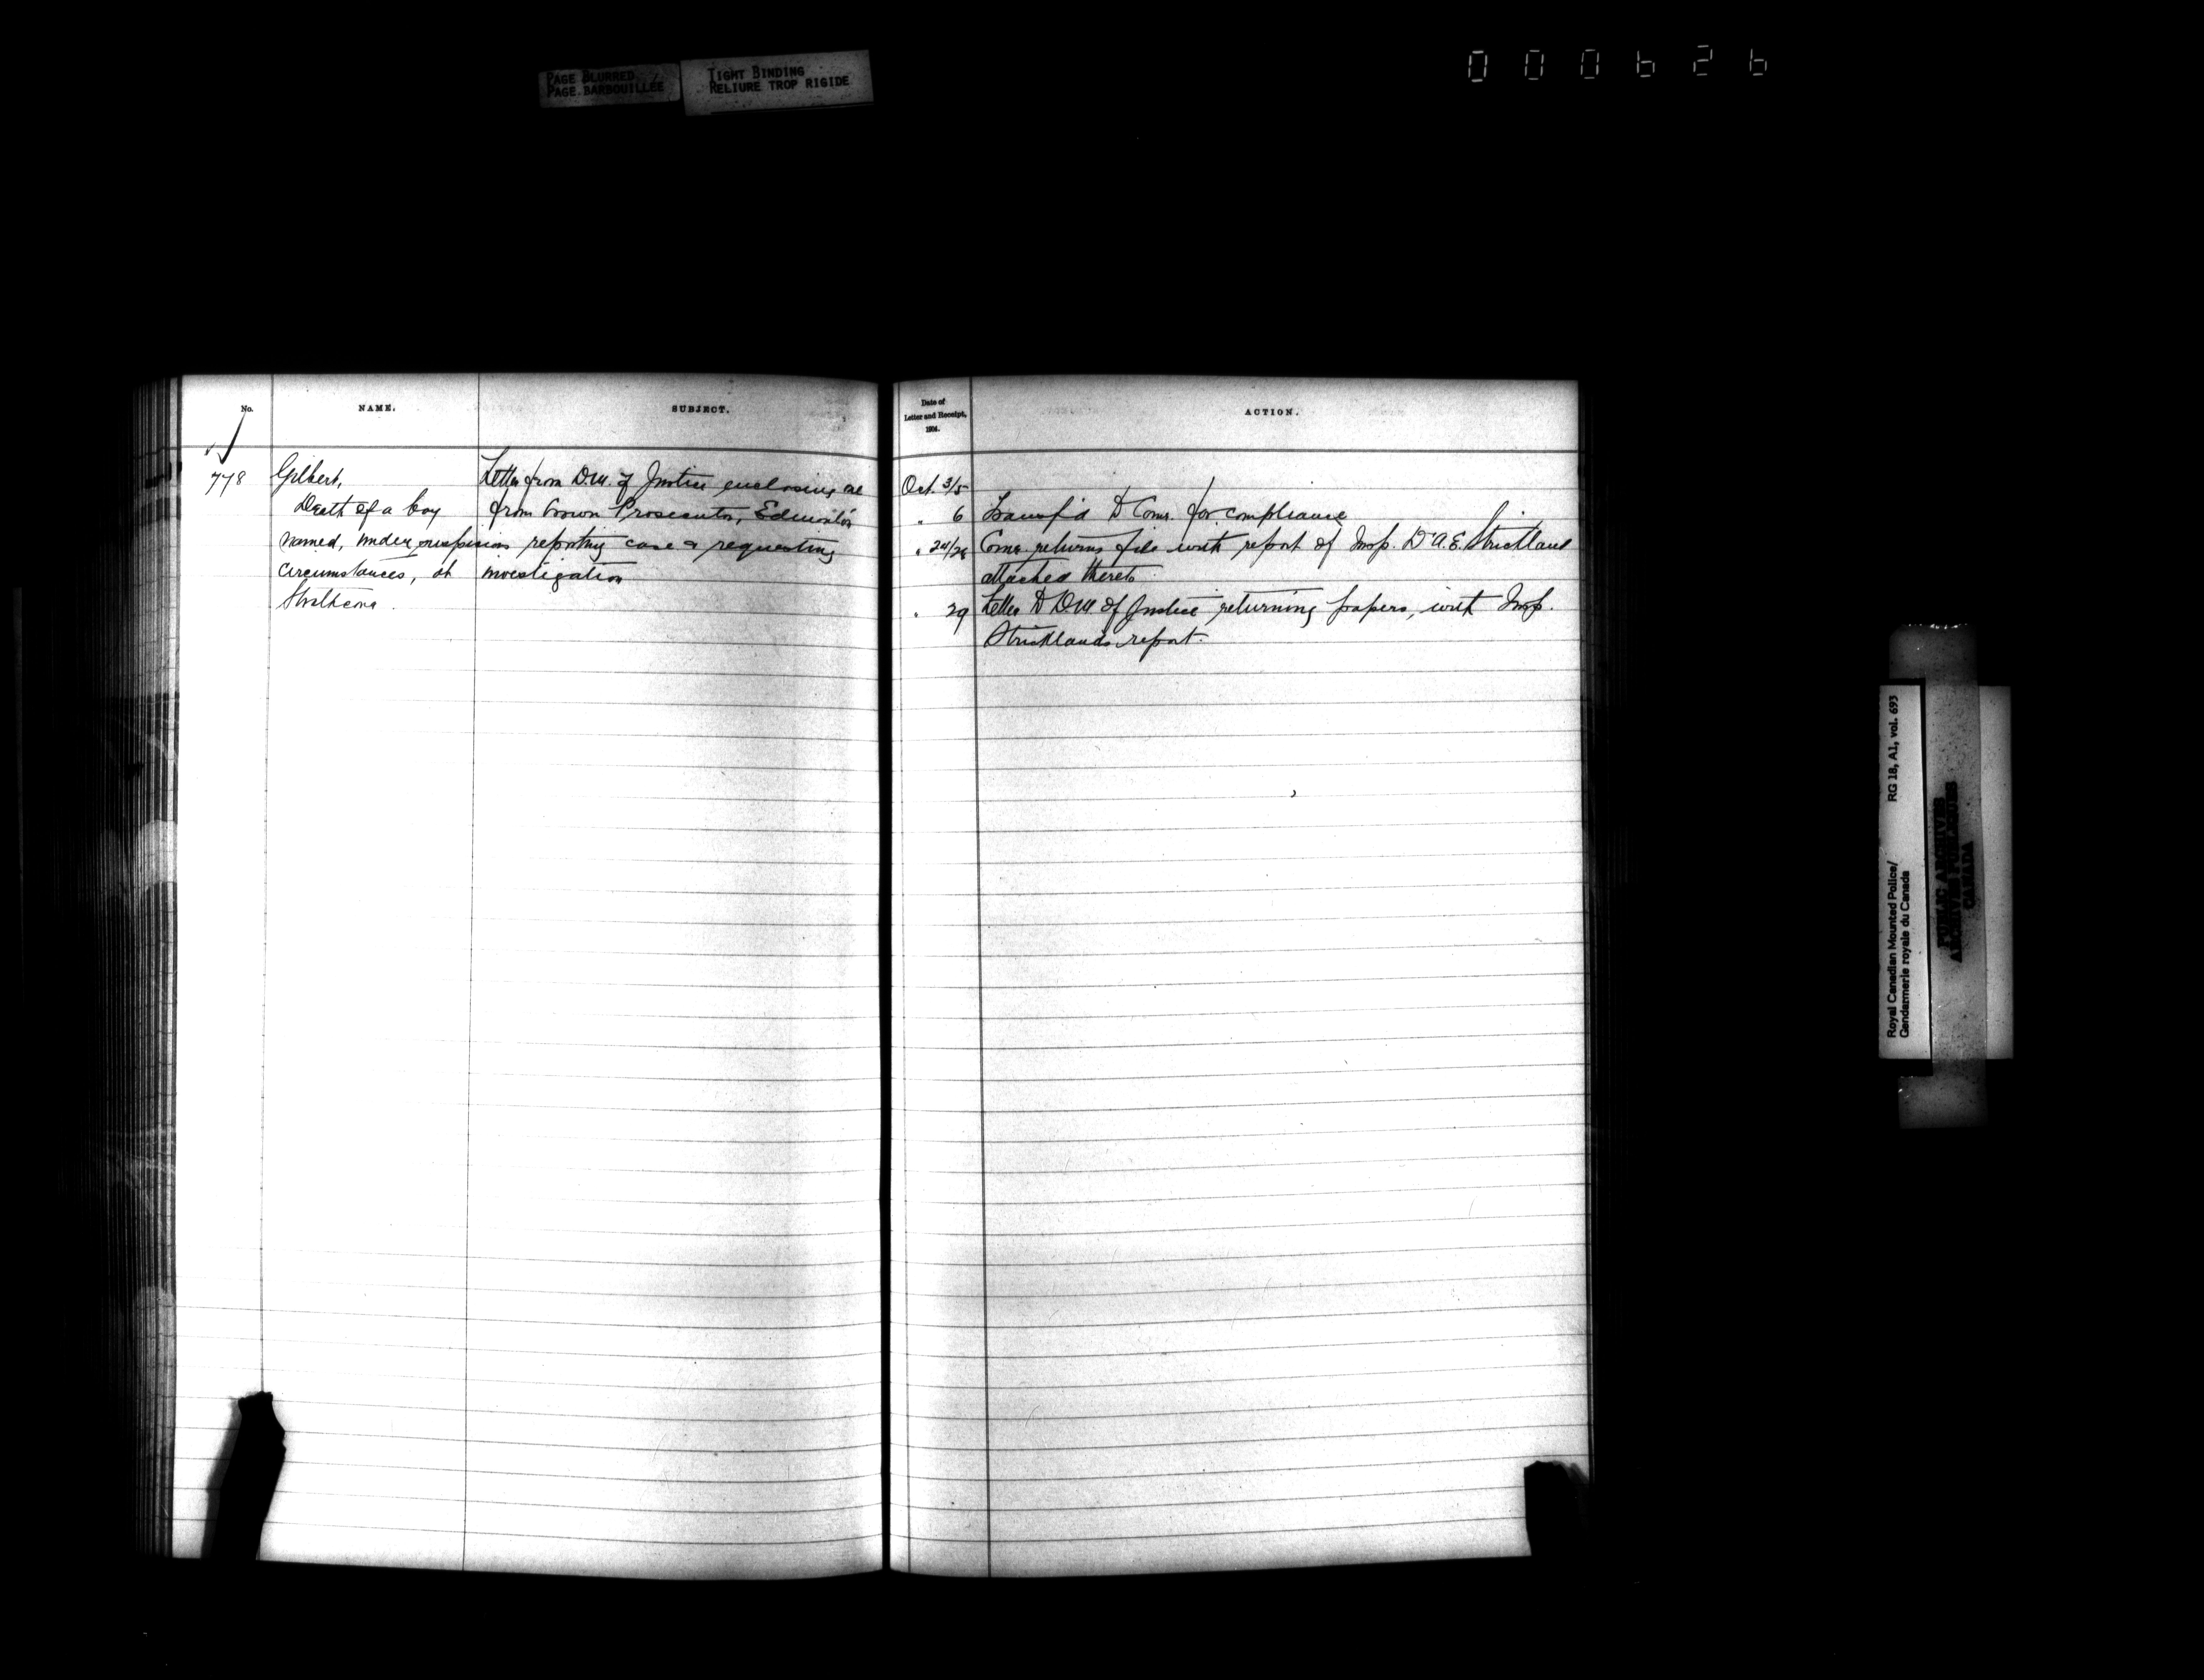 PAGE BLURRED
PAGE BARBOUILLÉE
TIGHT BINDING
RELIURE TROP RIGIDE
000626
No.
NAME.
SUBJECT.
Date of
Letter and Receipt,
1904.
ACTION.
778
Gilbert,
Death of a boy
named, under suspicious
circumstances, at
Strathcona.
Letter from D.M. of Justice enclosing one
from Crown Prosecutor, Edmonton
reporting case & requesting
investigation
Oct. 3/5
" 6 Transf'd to Comr. for compliance
" 24/28 Comr. returns file with report of Insp. D'A.E. Strickland
attached thereto.
" 29 Letter to D.M. of Justice returning papers, with Insp.
Stricklands report.
Royal Canadian Mounted Police/
Gendarmerie royale du Canada
RG 18, A1, vol. 693
PUBLIC ARCHIVES
ARCHIVES PUBLIQUES
CANADA